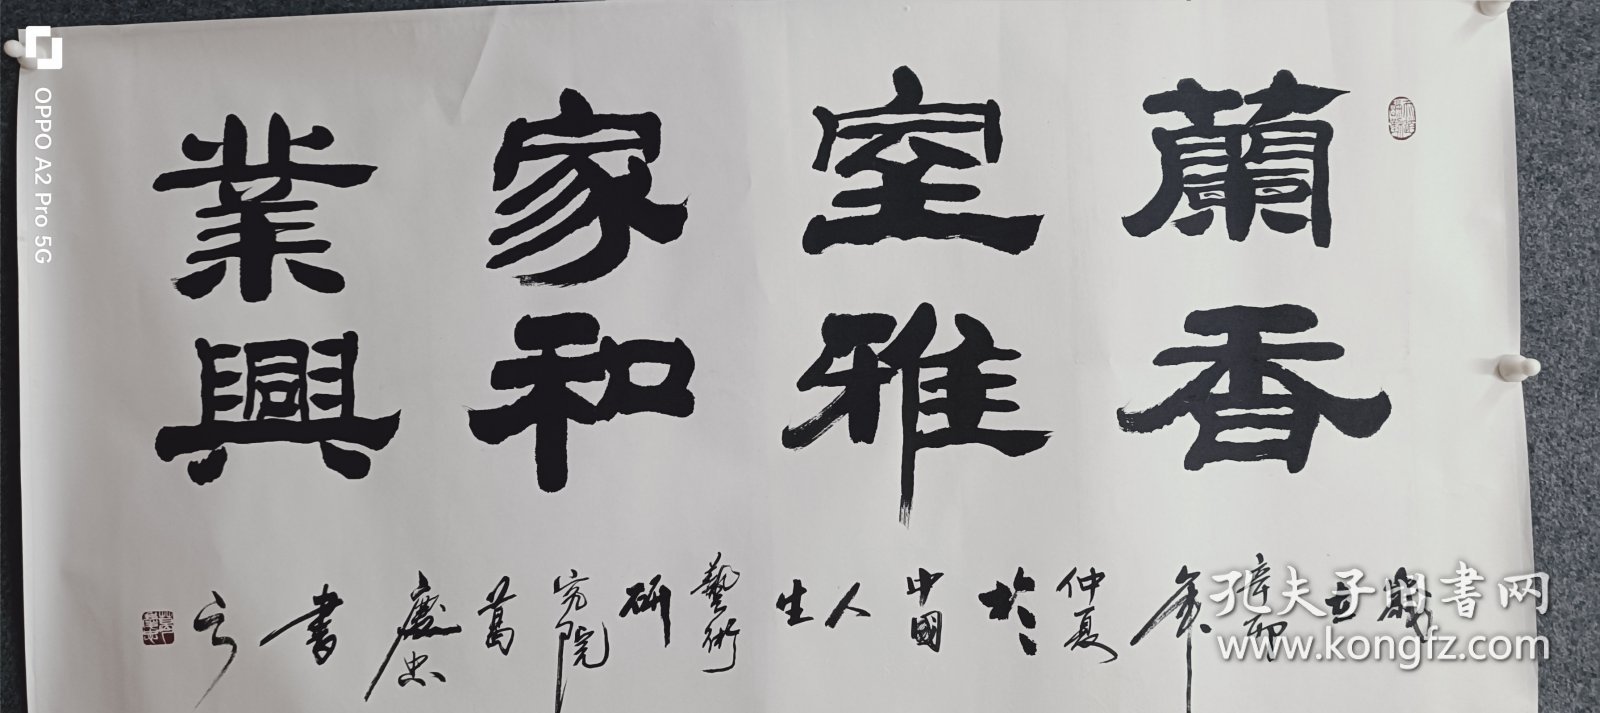 蘭香
室雅
家和
業興
歲在辛卯年仲夏於中國人生藝術研究院葛慶忠書
孔夫子旧书网
www.kongfz.com
OPPO A2 Pro 5G